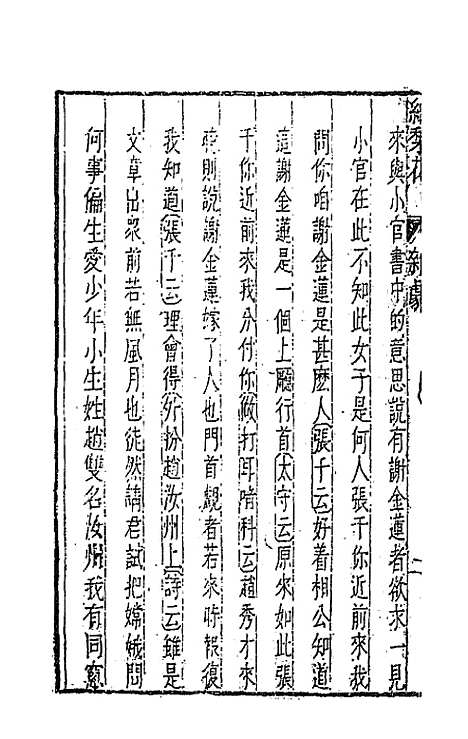 來與小官書中的意思說有謝金蓮者欲求一見
小官在此不知此女子是何人張千你近前來我
問你咱謝金蓮是甚麽人張千云好着相公知道
這謝金蓮是一個上廳行首太守云原來如此張
千你近前來我分付你做打耳喑科云趙秀才來
時則說謝金蓮嫁了人也門首覷者若來時報復
我知道張千云理會得外扮趙汝州上詩云雖是
文章出眾前若無風月也徒然請君試把嫦娥問
何事偏生愛少年小生姓趙雙名汝州我有同窓